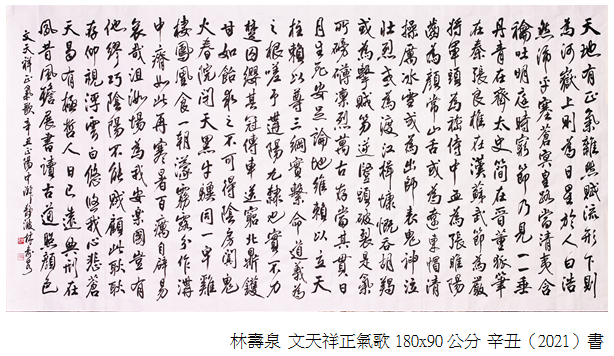 天地有正氣雜然賦流形下則
為河嶽上則為日星於人曰浩
然沛乎塞蒼冥皇路當清夷含
和吐明庭時窮節乃見一一垂
丹青在齊太史簡在晉董狐筆
在秦張良椎在漢蘇武節為嚴
將軍頭為嵇侍中血為張睢陽
齒為顏常山舌或為遼東帽清
操厲冰雪或為出師表鬼神泣
壯烈或為渡江楫慷慨吞胡羯
或為擊賊笏逆豎頭破裂是氣
所磅礡凜烈萬古存當其貫日
月生死安足論地維賴以立天
柱賴以尊三綱實繫命道義為
之根嗟予遘陽九隸也實不力
楚囚纓其冠傳車送窮北鼎鑊
甘如飴求之不可得陰房闃鬼
火春院閟天黑牛驥同一皂雞
棲鳳凰食一朝濛霧露分作溝
中瘠如此再寒暑百沴自辟易
哀哉沮洳場為我安樂國豈有
他繆巧陰陽不能賊顧此耿耿
在仰視浮雲白悠悠我心悲蒼
天曷有極哲人日已遠典刑在
夙昔風簷展書讀古道照顏色
文天祥正氣歌辛丑正陽中澣靜波林壽泉
林壽泉 文天祥正氣歌 180x90公分 辛丑（2021）書